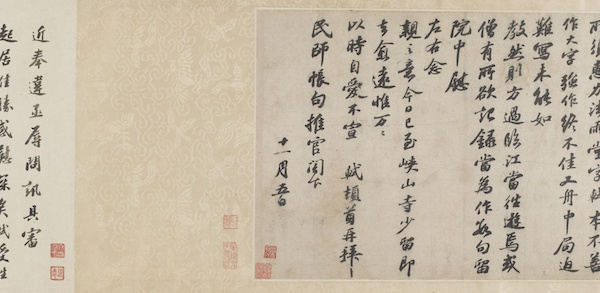 所須惠力法雨堂字軾本不善
作大字強作終不佳又舟中局迫
難寫未能如
教然則方過臨江當往遊焉或
僧有所欲記錄當為作數句留
院中慰
左右念
親之意今日已至峽山寺少留即
去愈遠惟万〻
以時自愛不宣 軾頓首再拜
民師帳句推官閣下
十一月五日
近奉違亟辱問訊具審
起居佳勝感慰深矣軾受性